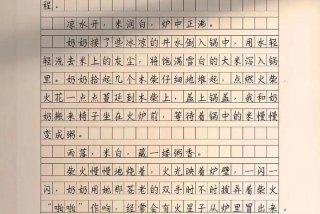 程。
凉水开，米润白，炉中正沸。
奶奶接了些冰凉的井水倒入锅中，用水轻
轻洗去米上的灰尘，将饱满雪白的大米泻入锅
里。奶奶拾起几个木柴仔细地堆起，点燃火柴
火花一点点蔓延到木柴上，盖上锅盖，我和奶
奶搬来椅子坐在火炉前，等待着锅中的米慢慢
变成粥。
雨落，米白，藏一缕粥香。
柴火慢慢地烧着，火光映着炉壁，一闪一
闪，奶奶用她那苍老的双手时不时拨弄着柴火
“啪啪”作响，经常会有火星子从炉里冒出来